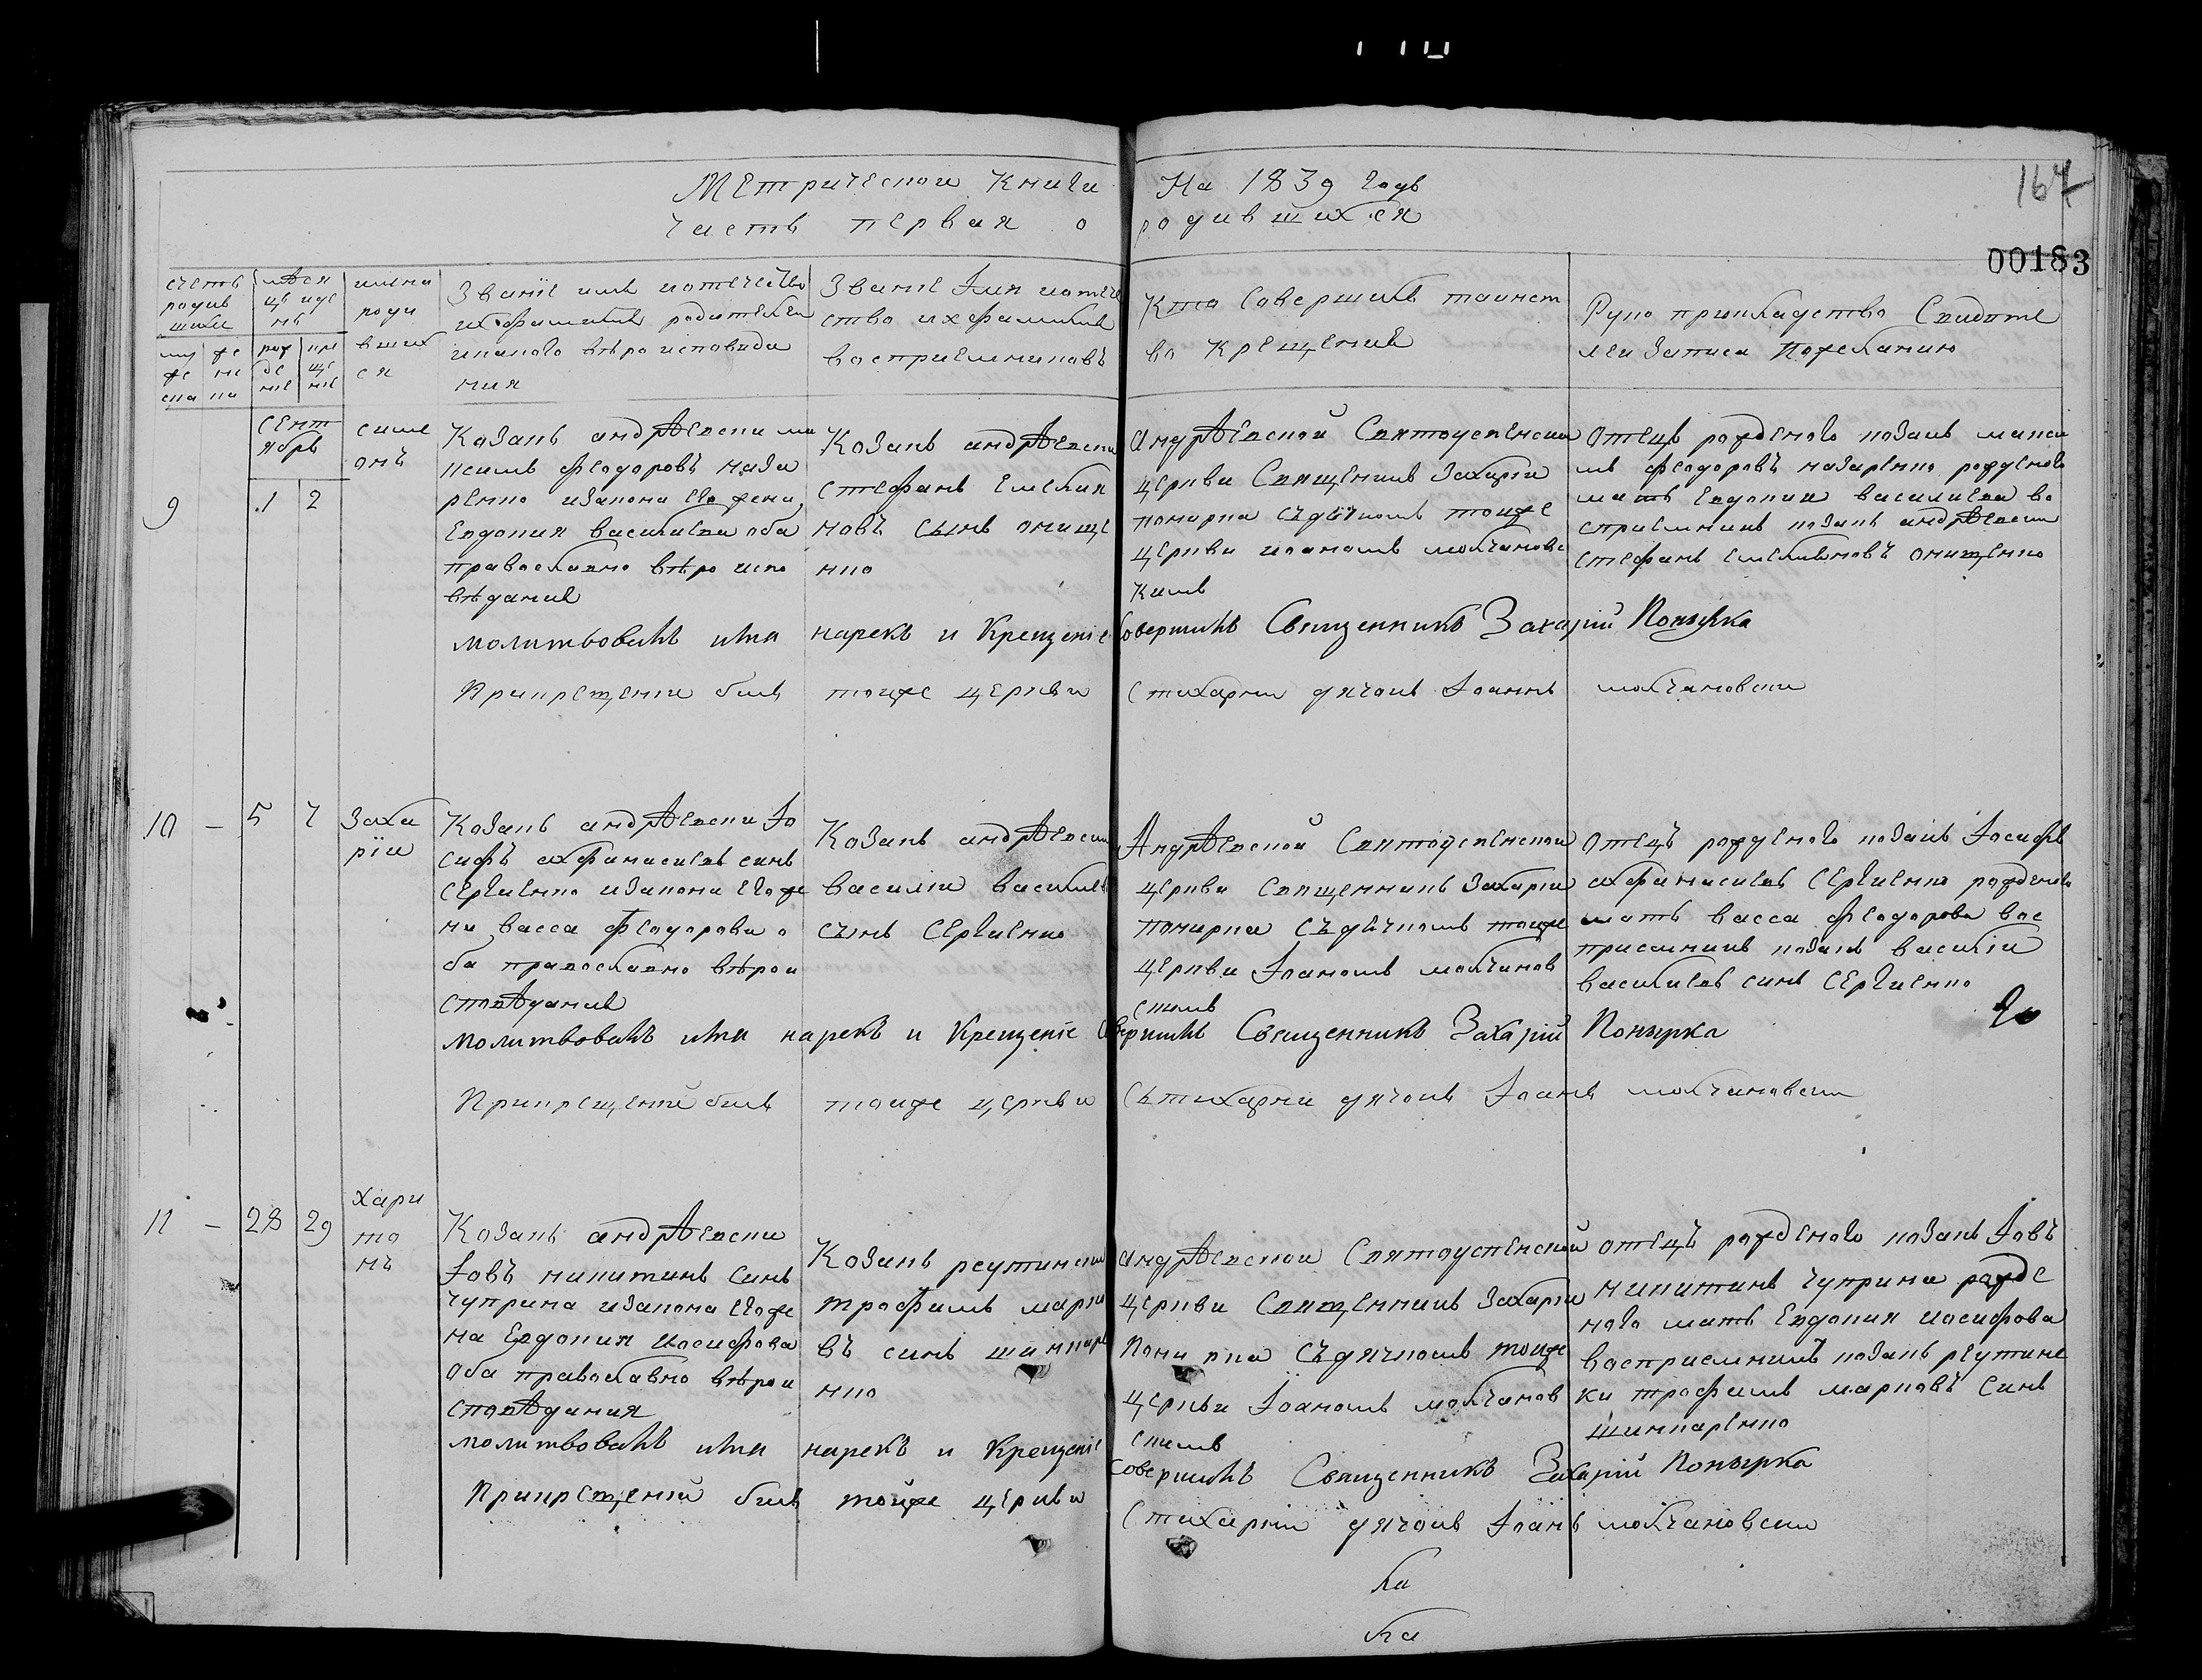 Метрической Книги На 1839 годъ
часть первая о родившихся
167
00183
счетъ родив шихс
муже ска
женс ка
мѣся цъ иде нь
рожде ние
кре ще ние
имена роди вших ся
Званіе имя иотечество
ихфамилия родителеи
икакого вѣроисповида
ния
Званіе Імя иотече
ство ихфамилия
восприемниковъ
Кто Совершилъ таинст
во Крещения
Руко прикладство Свидѣте
леи Записи Пожеланию
Сент
ябрь
9
1
2
симе
онъ
Козакъ андрѣевски ма
ксимъ феодоровъ наза
ренко изакона его жена
Евдокия василиева оба
православно вѣро испо
вѣдания
Козакъ андрѣевски
Стефанъ Емелия
новъ Сынъ онище
нко
андрѣевской Святоуспенскои
церкви Священикъ Захарги
понирка Съдячкомъ тоиже
церкви иоаномъ молчановс
кимъ
отецъ рожденого козакъ макси
мъ феодоровъ назаренко рожденого
мать Евдокия василиева во
сприемникъ козакъ андрѣевски
Стефанъ Емелияновъ онищенко
молитвовалъ имя нарекъ и Крещеніе Совершилъ Священникъ Захарій Понырка
Прикрещении билъ тоиже церкви Стихарни дячокъ Іоаннъ молчановски
10
-
5
7
Заха
рїи
Козакъ андрѣевски Іо
сифъ ахфанасиевъ синъ
Сергиенко изакона егоже
на васса Феодорова о
ба православно вѣрои
споvѣдания
Козакъ андрѣевски
василіи василиевъ
сынъ Сергиенко
Андрѣевской Святоуспенскои
церкви Священникъ Захарги
понирка Съдячкомъ тоиже
церкви Іоаномъ молчанов
скимъ
отецъ рожденого козакъ Іосифъ
ахфанасиевъ Сергиенко рожденого
мать васса феодорова вос
приемникъ козакъ василіи
василиевъ синъ Сергиенко
молитвовалъ имя нарекъ и Крещеніе Совершилъ Священникъ Захарій Понырка
Прикрещений билъ тоиже церкви Стихарни дячокъ Іоанъ молчановски
11
-
28
29
хари
то
нъ
Козакъ андрѣевски
Іовъ никитинъ синъ
чуприна изакона егоже
на Евдокия иосифова
оба православно вѣрои
сповѣдания
Козакъ реутински
трофимъ марко
въ синъ шинкаре
нко
андрѣевскои Святоуспенской
церкви Священникъ Захарги
Пони рка Съдячкомъ тоиже
церкви Іоаномъ молчанов
скимъ
отецъ рожденого козакъ Іовъ
никитинъ чуприна рожде
ного мать Евдокия иосифова
восприемникъ козакъ реутинс
ки трофимъ марковъ синъ
шинкаренко
молитвовалъ имя нарекъ и Крещеніе Совершилъ Священникъ Захарій Понырка
Прикрещений билъ тойже церкви Стихарни дячокъ Іоанъ молчановски